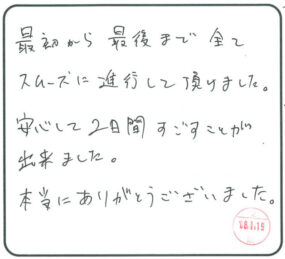 最初から 最後まで 全て
スムーズに 進行して 頂けました。
安心して 2日間 すごすことが
出来ました。
本当に ありがとうございました。
'18.1.19